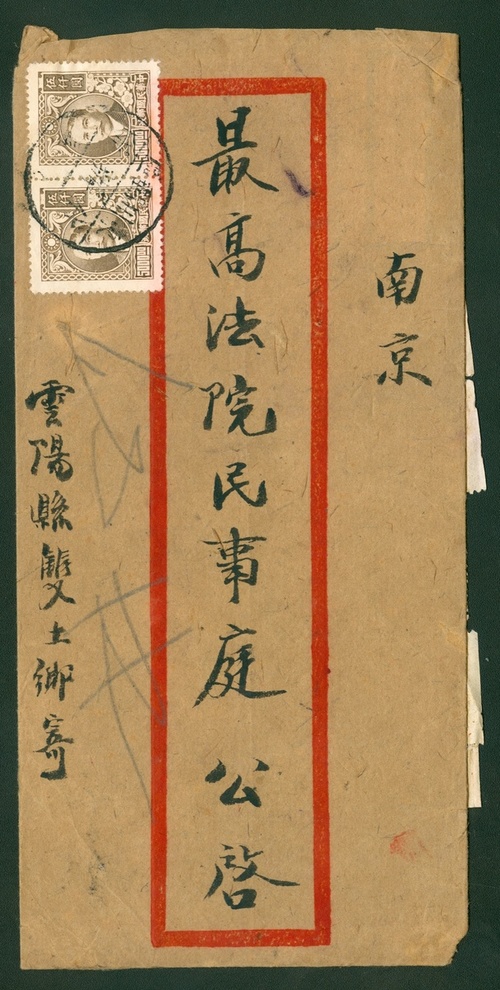 南京
最高法院民事庭 公啓
雲陽縣雙土鄉寄
伍仟圓
伍仟圓